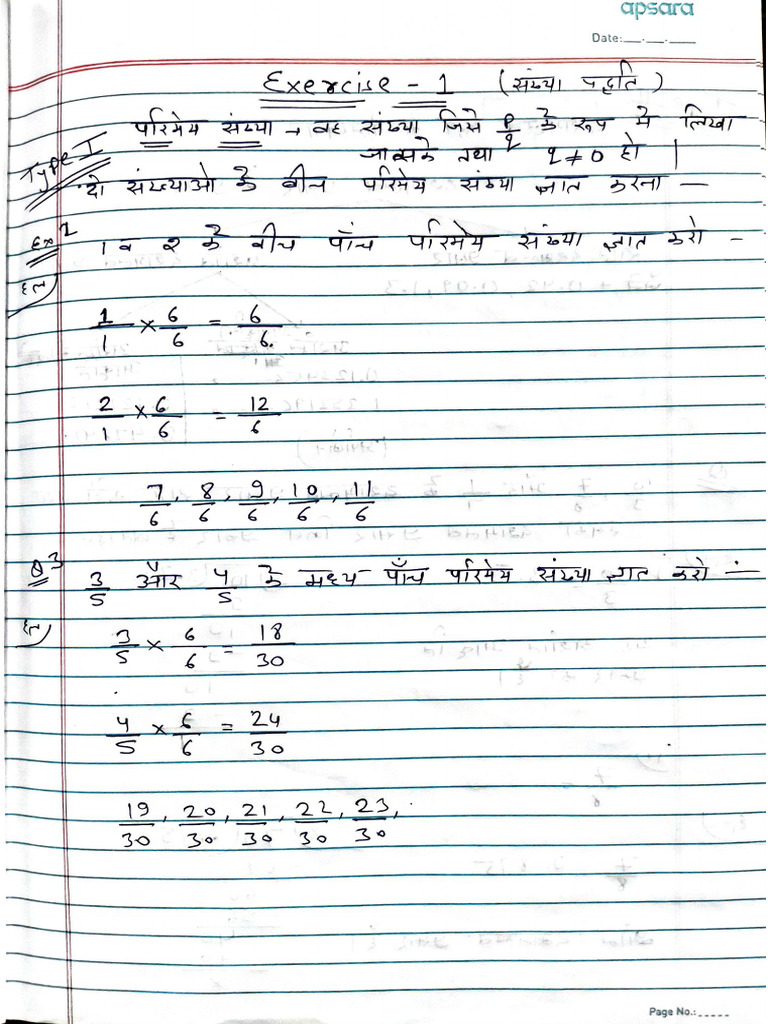 apsara
Date:__.__.__
Exercise - 1 (संख्या पद्धति)
Type I
परिमेय संख्या → वह संख्या जिसे p/q के रूप मे लिखा
जा सके तथा q ≠ 0 हो |
दो संख्याओ के बीच परिमेय संख्या ज्ञात करना —
Ex 1 1 व 2 के बीच पाँच परिमेय संख्या ज्ञात करो -
हल
1/1 × 6/6 = 6/6.
2/1 × 6/6 = 12/6
7/6, 8/6, 9/6, 10/6, 11/6
Q3 3/5 और 4/5 के मध्य पाँच परिमेय संख्या ज्ञात करो :-
हल
3/5 × 6/6 = 18/30
4/5 × 6/6 = 24/30
19/30, 20/30, 21/30, 22/30, 23/30,
Page No.:_____